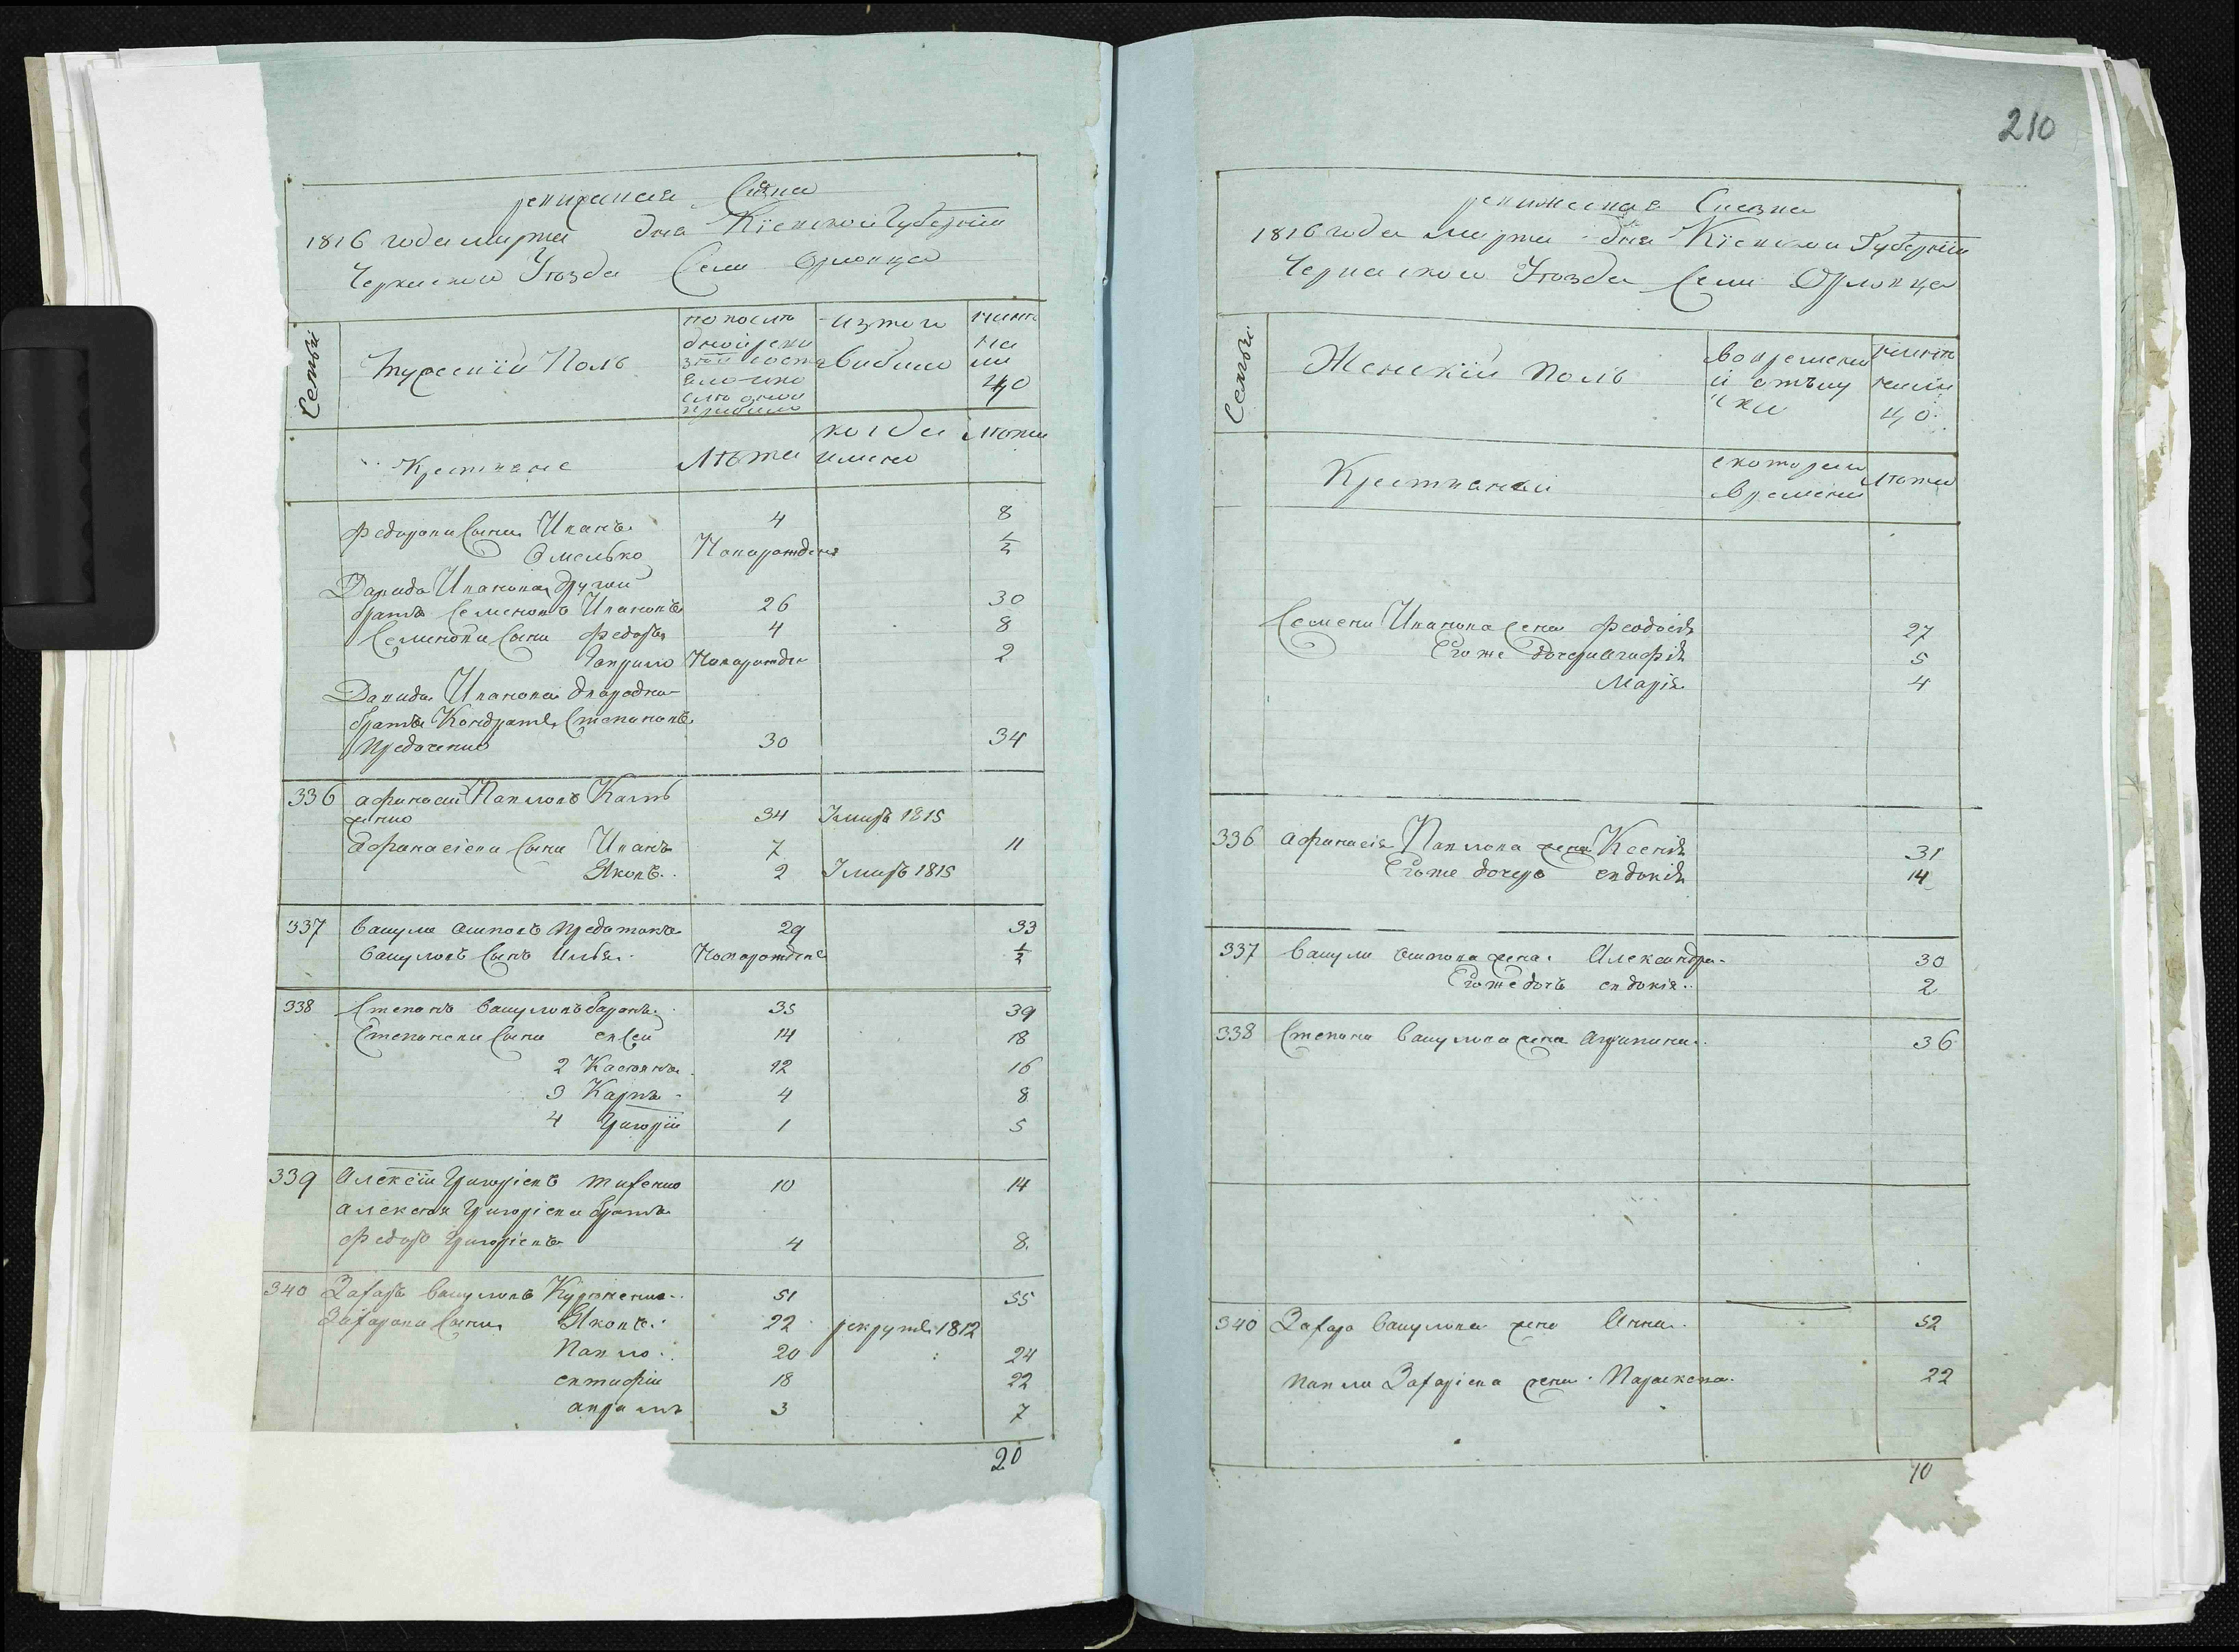 ревизская Сказка
1816 года Марта дня Кіевской Губерніи
Черкаского Уѣзда Села Орловца
Семьи
Мужескій Полъ
по послѣ
дной реви
зіи состо
яло и по
слѣ оной
прибыло
изъ того
выбыло
нынѣ
на
ли
цо
Крестяне
Лѣта
когда
имено
лѣта
Федорови Сыни Иванъ 4 8
Омелько Новорожденъ ½
Давида Иванова другой
братъ Семенъ Ивановъ 26 30
Семенови Сыни Федоръ 4 8
Гаврило Новорожде 2
Давида Иванова двородни
братъ Кондратъ Степановъ
30 34
336 афанасий Павловъ
34 Умиръ 1815
афанасіеви Сыни Иванъ 7 11
Яковъ 2 Умиръ 1815
337 Вакула 29 33
Вакуловъ Сынъ Илья Новорожденъ ½
338 Степанъ Вакуловъ баранъ 35 39
Степанови Сыни евсей 14 18
2 Касьянъ 12 16
3 Карпъ 4 8
4 Григорій 1 5
339 Алексій Григоріевъ 10 14
алексея Григоріева братъ
Федоръ Григоріевъ 4 8
340 Захаръ Вакуловъ 51 55
Захарови Сыни Яковъ 22 рекрутъ 1812
Павло 20 24
евтифій 18 22
3 7
20
210
ревижская Сказка
1816 года Марта дня Кіевской Губерніи
Черкаского Уѣзда Села Орловца
Семьи
Женскій Полъ
Во времени
й отълу
чки
нынѣ
нали
цо
Крестянки
с которого
Времени
лѣта
Семена Иванова жена Феодосія 27
Егоже дочери агафія 5
Марія 4
336 афанасія Павлова жена Ксенія 31
Егоже дочерь евдокія 14
337 Вакули жена Александра 30
Егоже дочь евдокія 2
338 Степана Вакулова жена агрипина 36
340 Захара Вакулова жена Анна 52
павла Захаріева жена Параскева 22
10